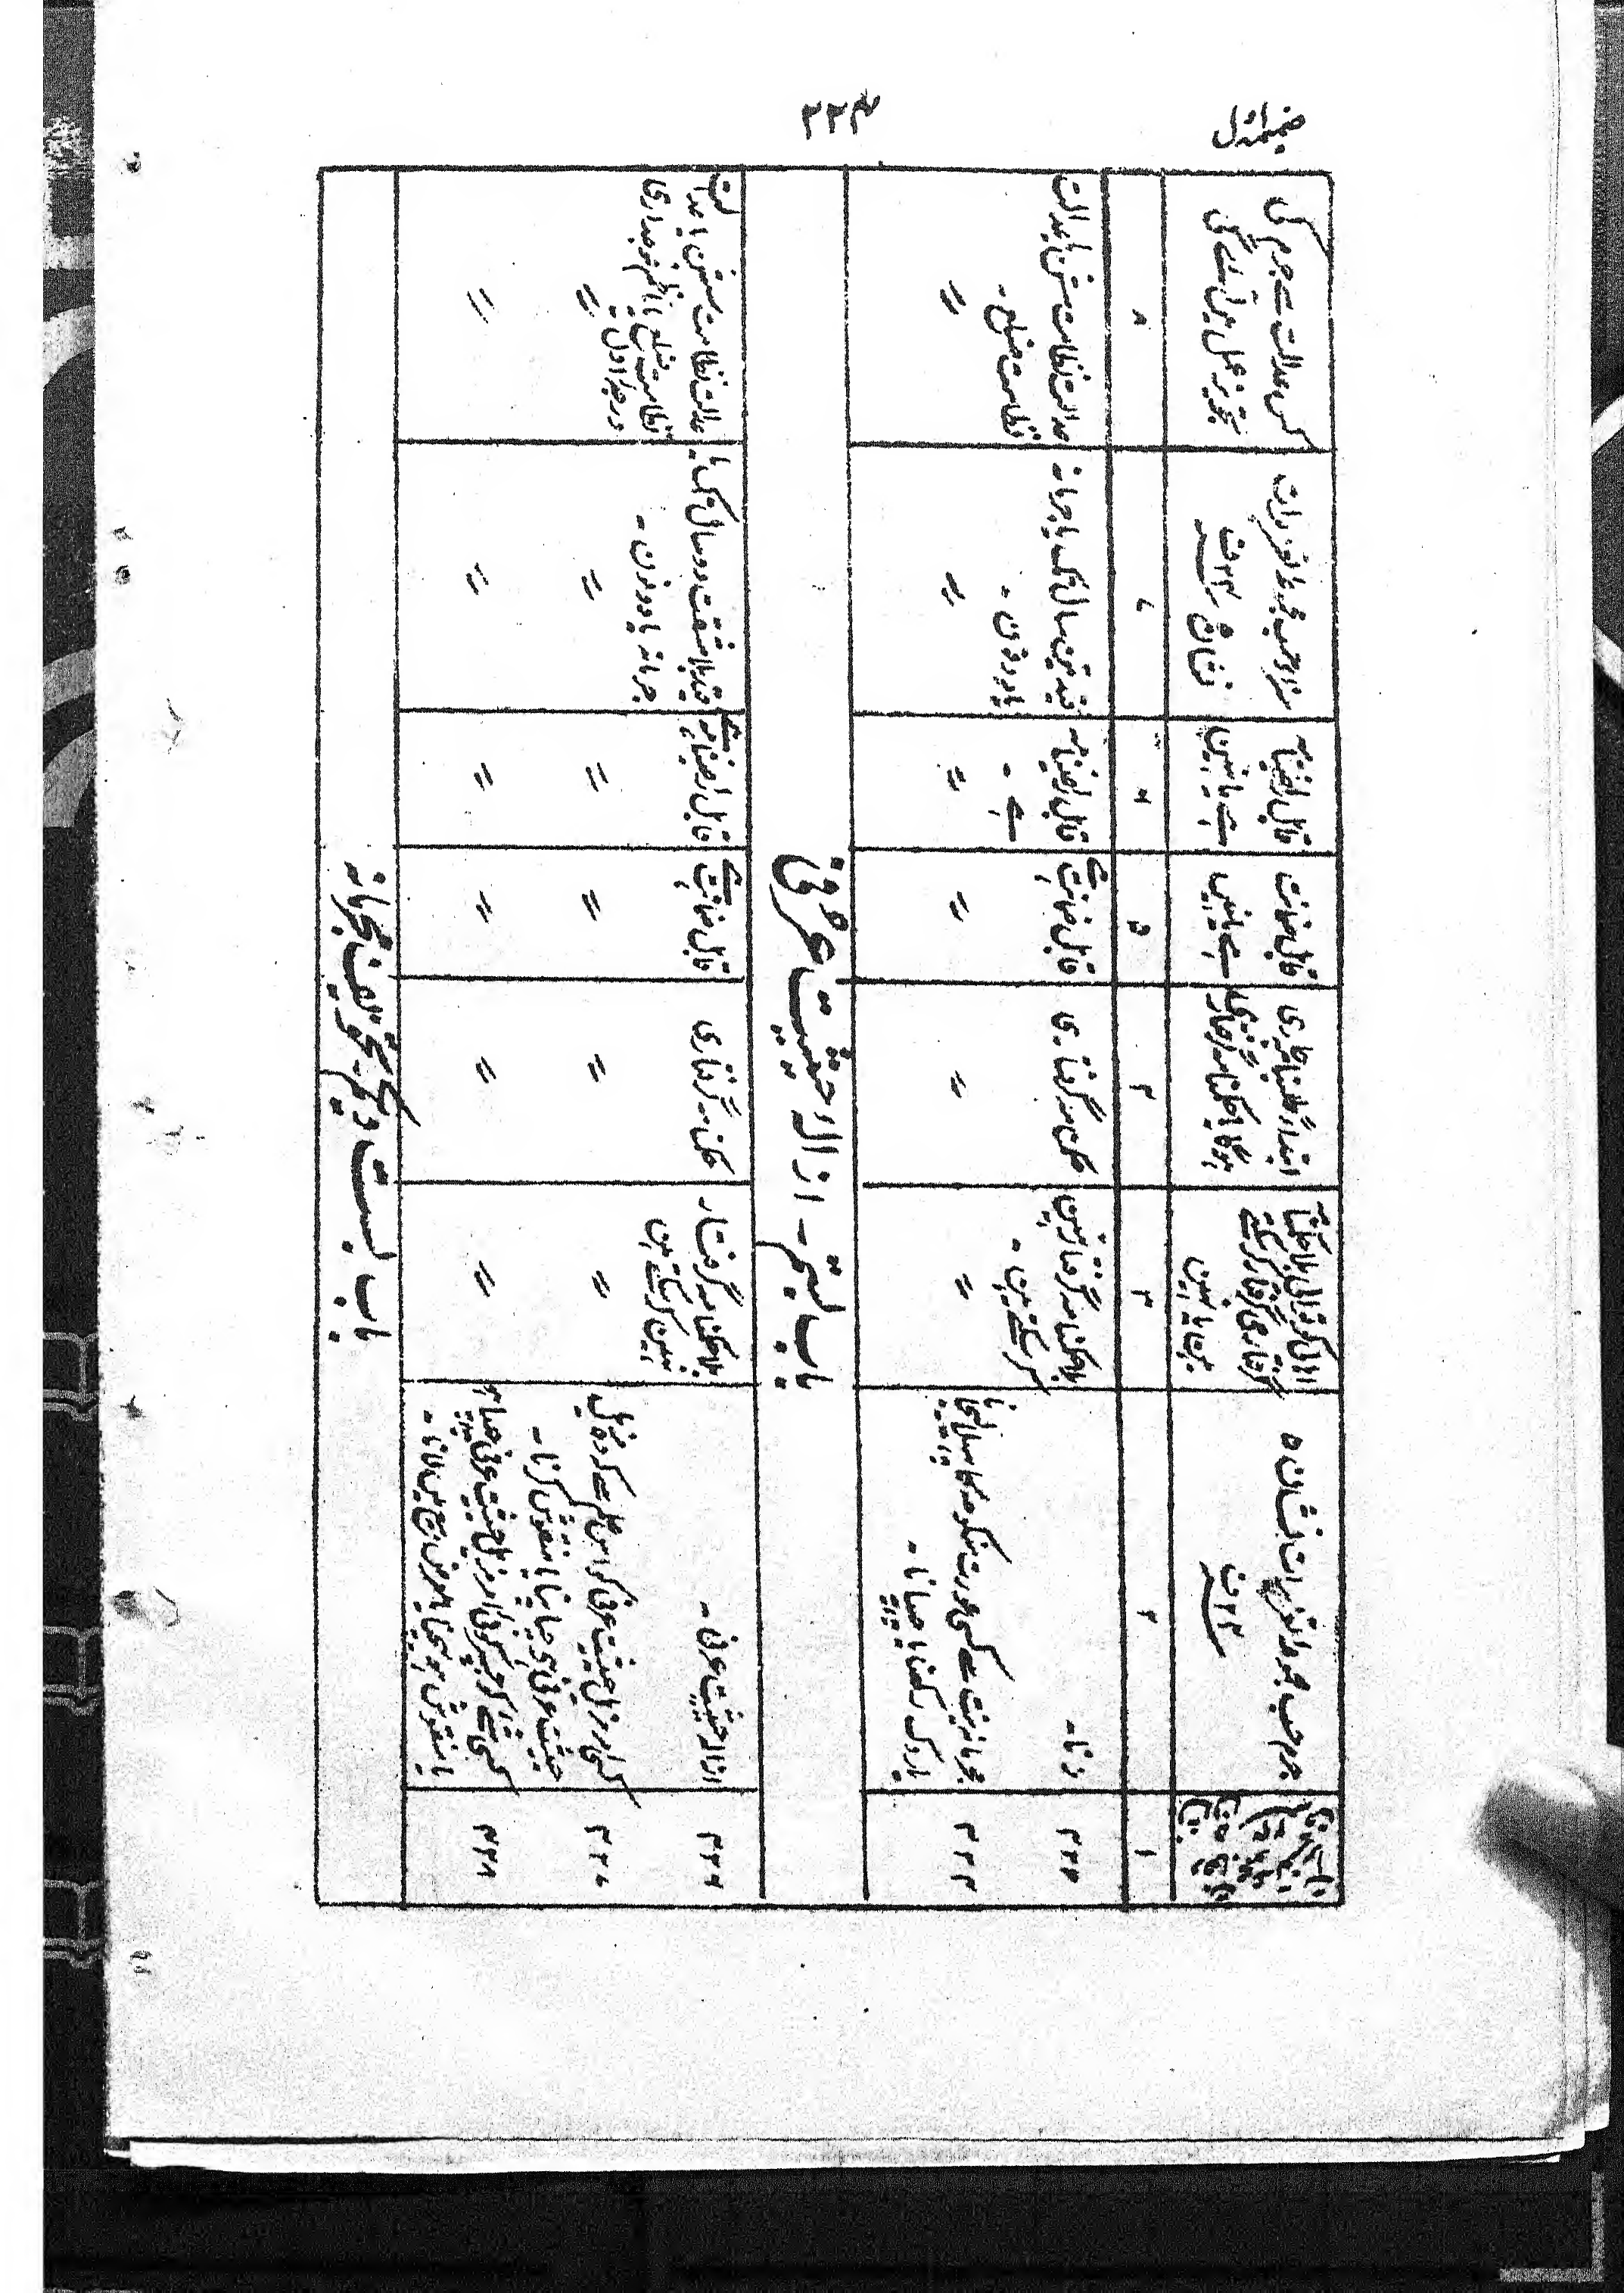 ضمیمہ اول
۲۲۴
جرم حسب مجموعہ تعزیرات نشان ۵
سنہ ۱۳۰۴ ف
آیا اہل کوتوالی بلا حکمنامہ
گرفتاری گرفتار کرسکتے
ہین یا نہین
ابتداءً طلبنامہ جاری
ہوگا یا حکمنامہ گرفتاری
قابل ضمانت
ہے یا نہین
قابل راضینامہ
ہے یا نہین
سزا حسب مجموعہ تعزیرات
نشان
کس عدالت سے جرم کی
تجویز عمل مین آئے گی
۱
۲
۳
۴
۵
۶
۷
۸
زنا ۔
بلا حکمنامہ گرفتار نہین
کرسکتے ہین ۔
حکمنامہ گرفتاری
قابل ضمانت ہے
قابل راضینامہ
ہے ۔
قید تین سال تک یا جرمانہ
یا دونون ۔
عدالت نظامت سشن یا عدالت
نظامت ضلع ۔
مجرمانہ نیت سے کسی عورت منکوحہ کا پھسلا لیجانا
یا روک رکھنا یا چھپانا ۔
〃
〃
〃
〃
〃
〃
باب بستم ۔ ازالہ حیثیت عرفی
ازالہ حیثیت عرفی ۔
بلا حکمنامہ گرفتار
نہین کرسکتے ہین
حکمنامہ گرفتاری
قابل ضمانت ہے
قابل راضینامہ ہے
قید بلا مشقت دو سال تک یا
جرمانہ یا دونون ۔
عدالت نظامت سشن یا عدالت
نظامت ضلع یا ناظم فوجداری
درجہ اول
کسی امر مزیل حیثیت عرفی کو اس علم سے کہ وہ مزیل
حیثیت عرفی ہے چھاپنا یا منقوش کرنا ۔
〃
〃
〃
〃
〃
〃
کسی شے کو جسپر کوئی امر مزیل حیثیت عرفی چھپا
یا منقوش ہو بیچنا یا معرض بیع مین لانا ۔
〃
〃
〃
〃
〃
〃
باب بست و یکم ۔ تخویف مجرمانہ